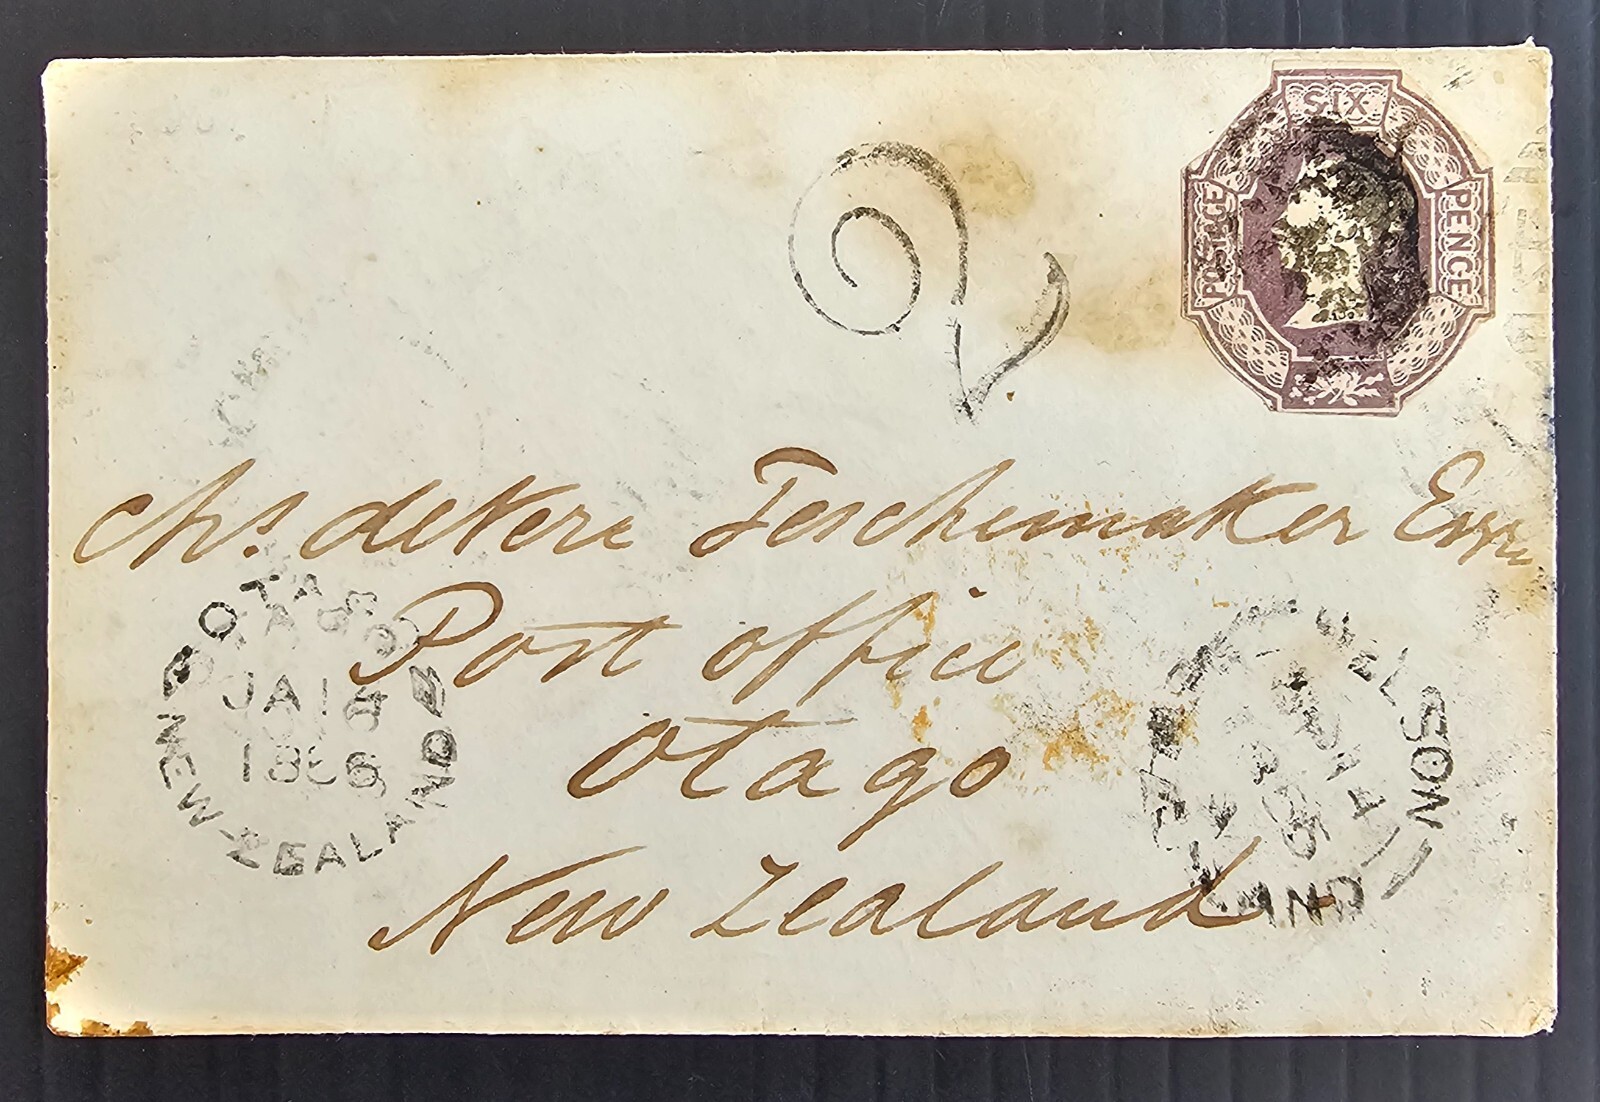 SIX
POSTAGE
PENCE
2
Chs. deVere Teschemaker Esqre
Post office
Otago
New Zealand
OTAGO
JA 14
1856
NEW-ZEALAND
NELSON